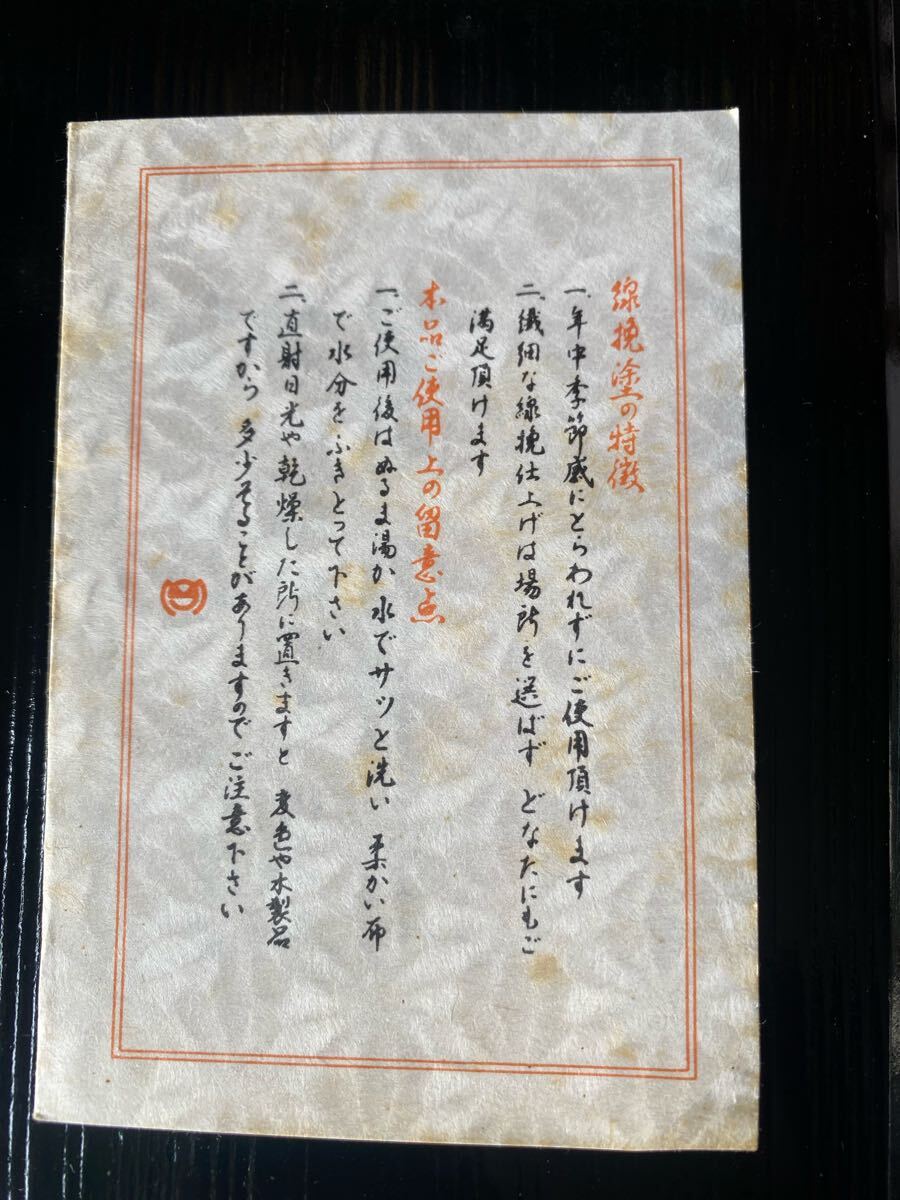 線挽塗の特徴
一、年中季節感にとらわれずにご使用頂けます
二、繊細な線挽仕上げは場所を選ばず どなたにもご
満足頂けます
本品ご使用上の留意点
一、ご使用後はぬるま湯か水でサッと洗い 柔かい布
で水分をふきとって下さい
二、直射日光や乾燥した所に置きますと 変色や木製品
ですから 多少そることがありますので ご注意下さい